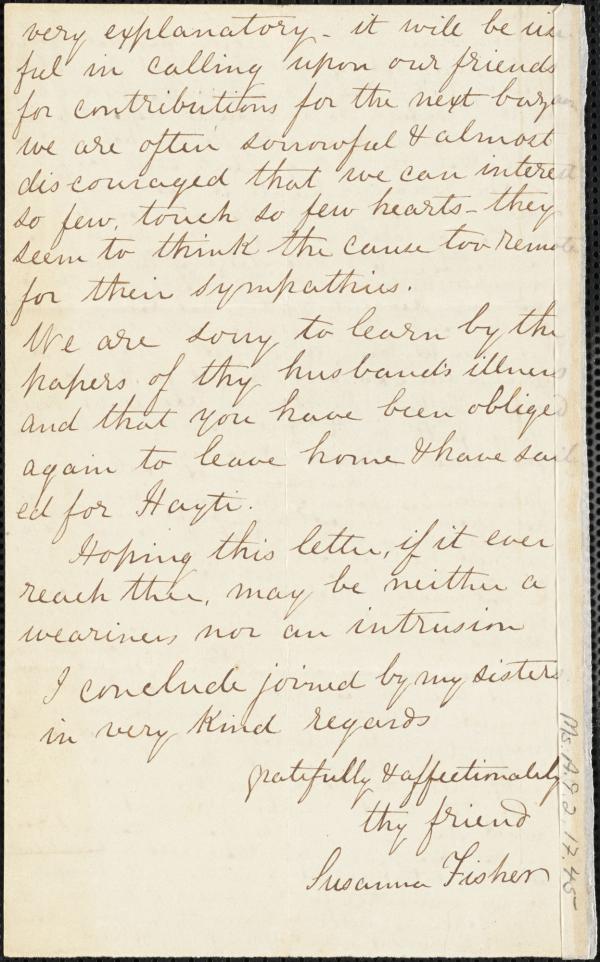 very explanatory - it will be us
ful in calling upon our friends
for contributions for the next bazaar
we are often sorrowful & almost
discouraged that we can interest
so few, touch so few hearts - they
seem to think the cause too remote
for their sympathies.
We are sorry to learn by the
papers of thy husband's illness
and that you have been obliged
again to leave home & have sail
ed for Hayti.
Hoping this letter, if it ever
reach thee, may be neither a
weariness nor an intrusion
I conclude joined by my sisters
in very kind regards
gratefully & affectionately
thy friend
Susanna Fisher
Ms. A.9.2. 17.45